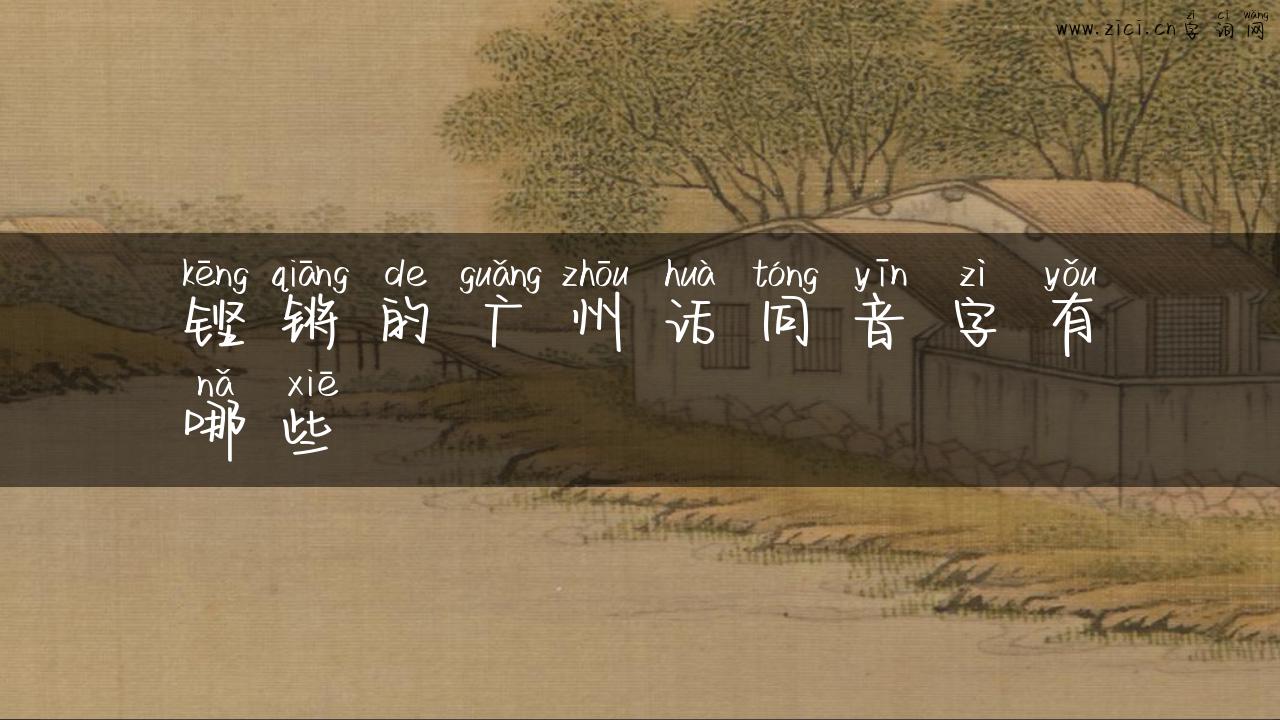 zì cí wǎng
www.zici.cn字词网
kēng qiāng de guǎng zhōu huà tóng yīn zì yǒu
铿锵的广州话同音字有
nǎ xiē
哪些